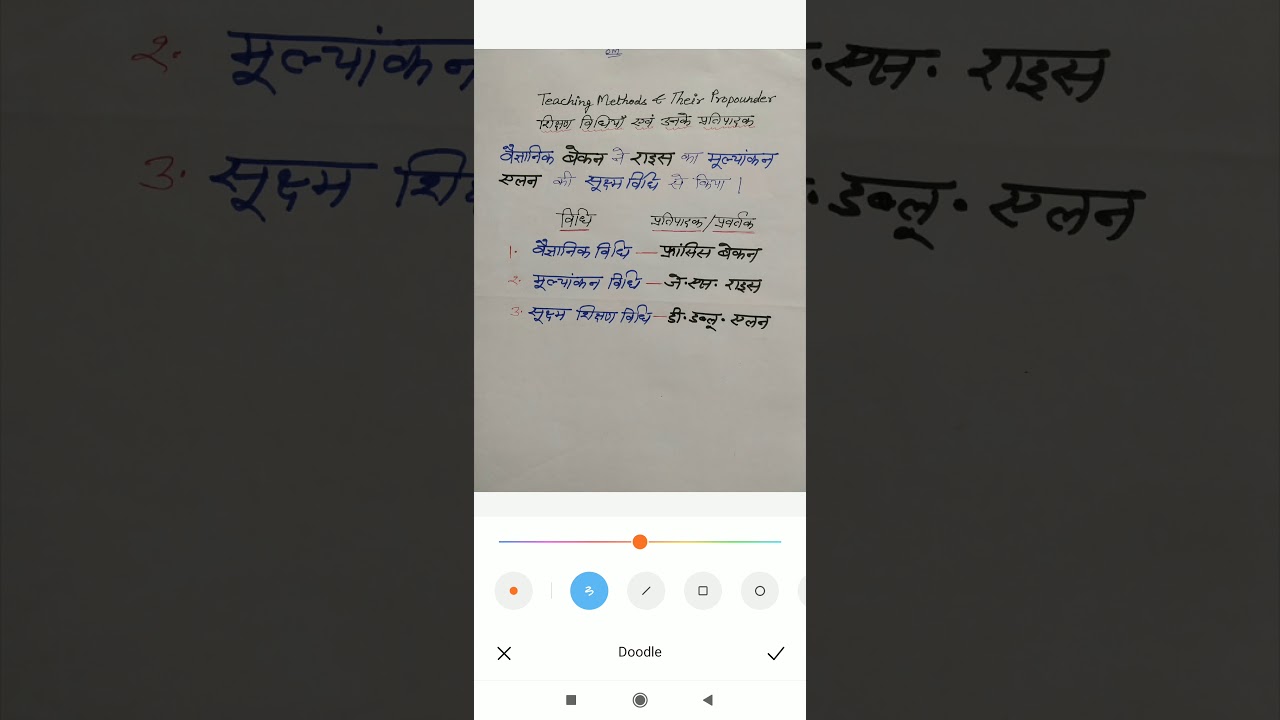 Teaching Methods & Their Propounder
शिक्षण विधियाँ एवं उनके प्रतिपादक
वैज्ञानिक बेकन ने राइस का मूल्यांकन
एलन की सूक्ष्म विधि से किया।
विधि प्रतिपादक/प्रवर्तक
1. वैज्ञानिक विधि — फ्रांसिस बेकन
२. मूल्यांकन विधि — जे.एस. राइस
3. सूक्ष्म शिक्षण विधि — डी. डब्लू. एलन
Doodle
२. मूल्यांकन
.एस. राइस
3. सूक्ष्म शि
. डब्लू. एलन